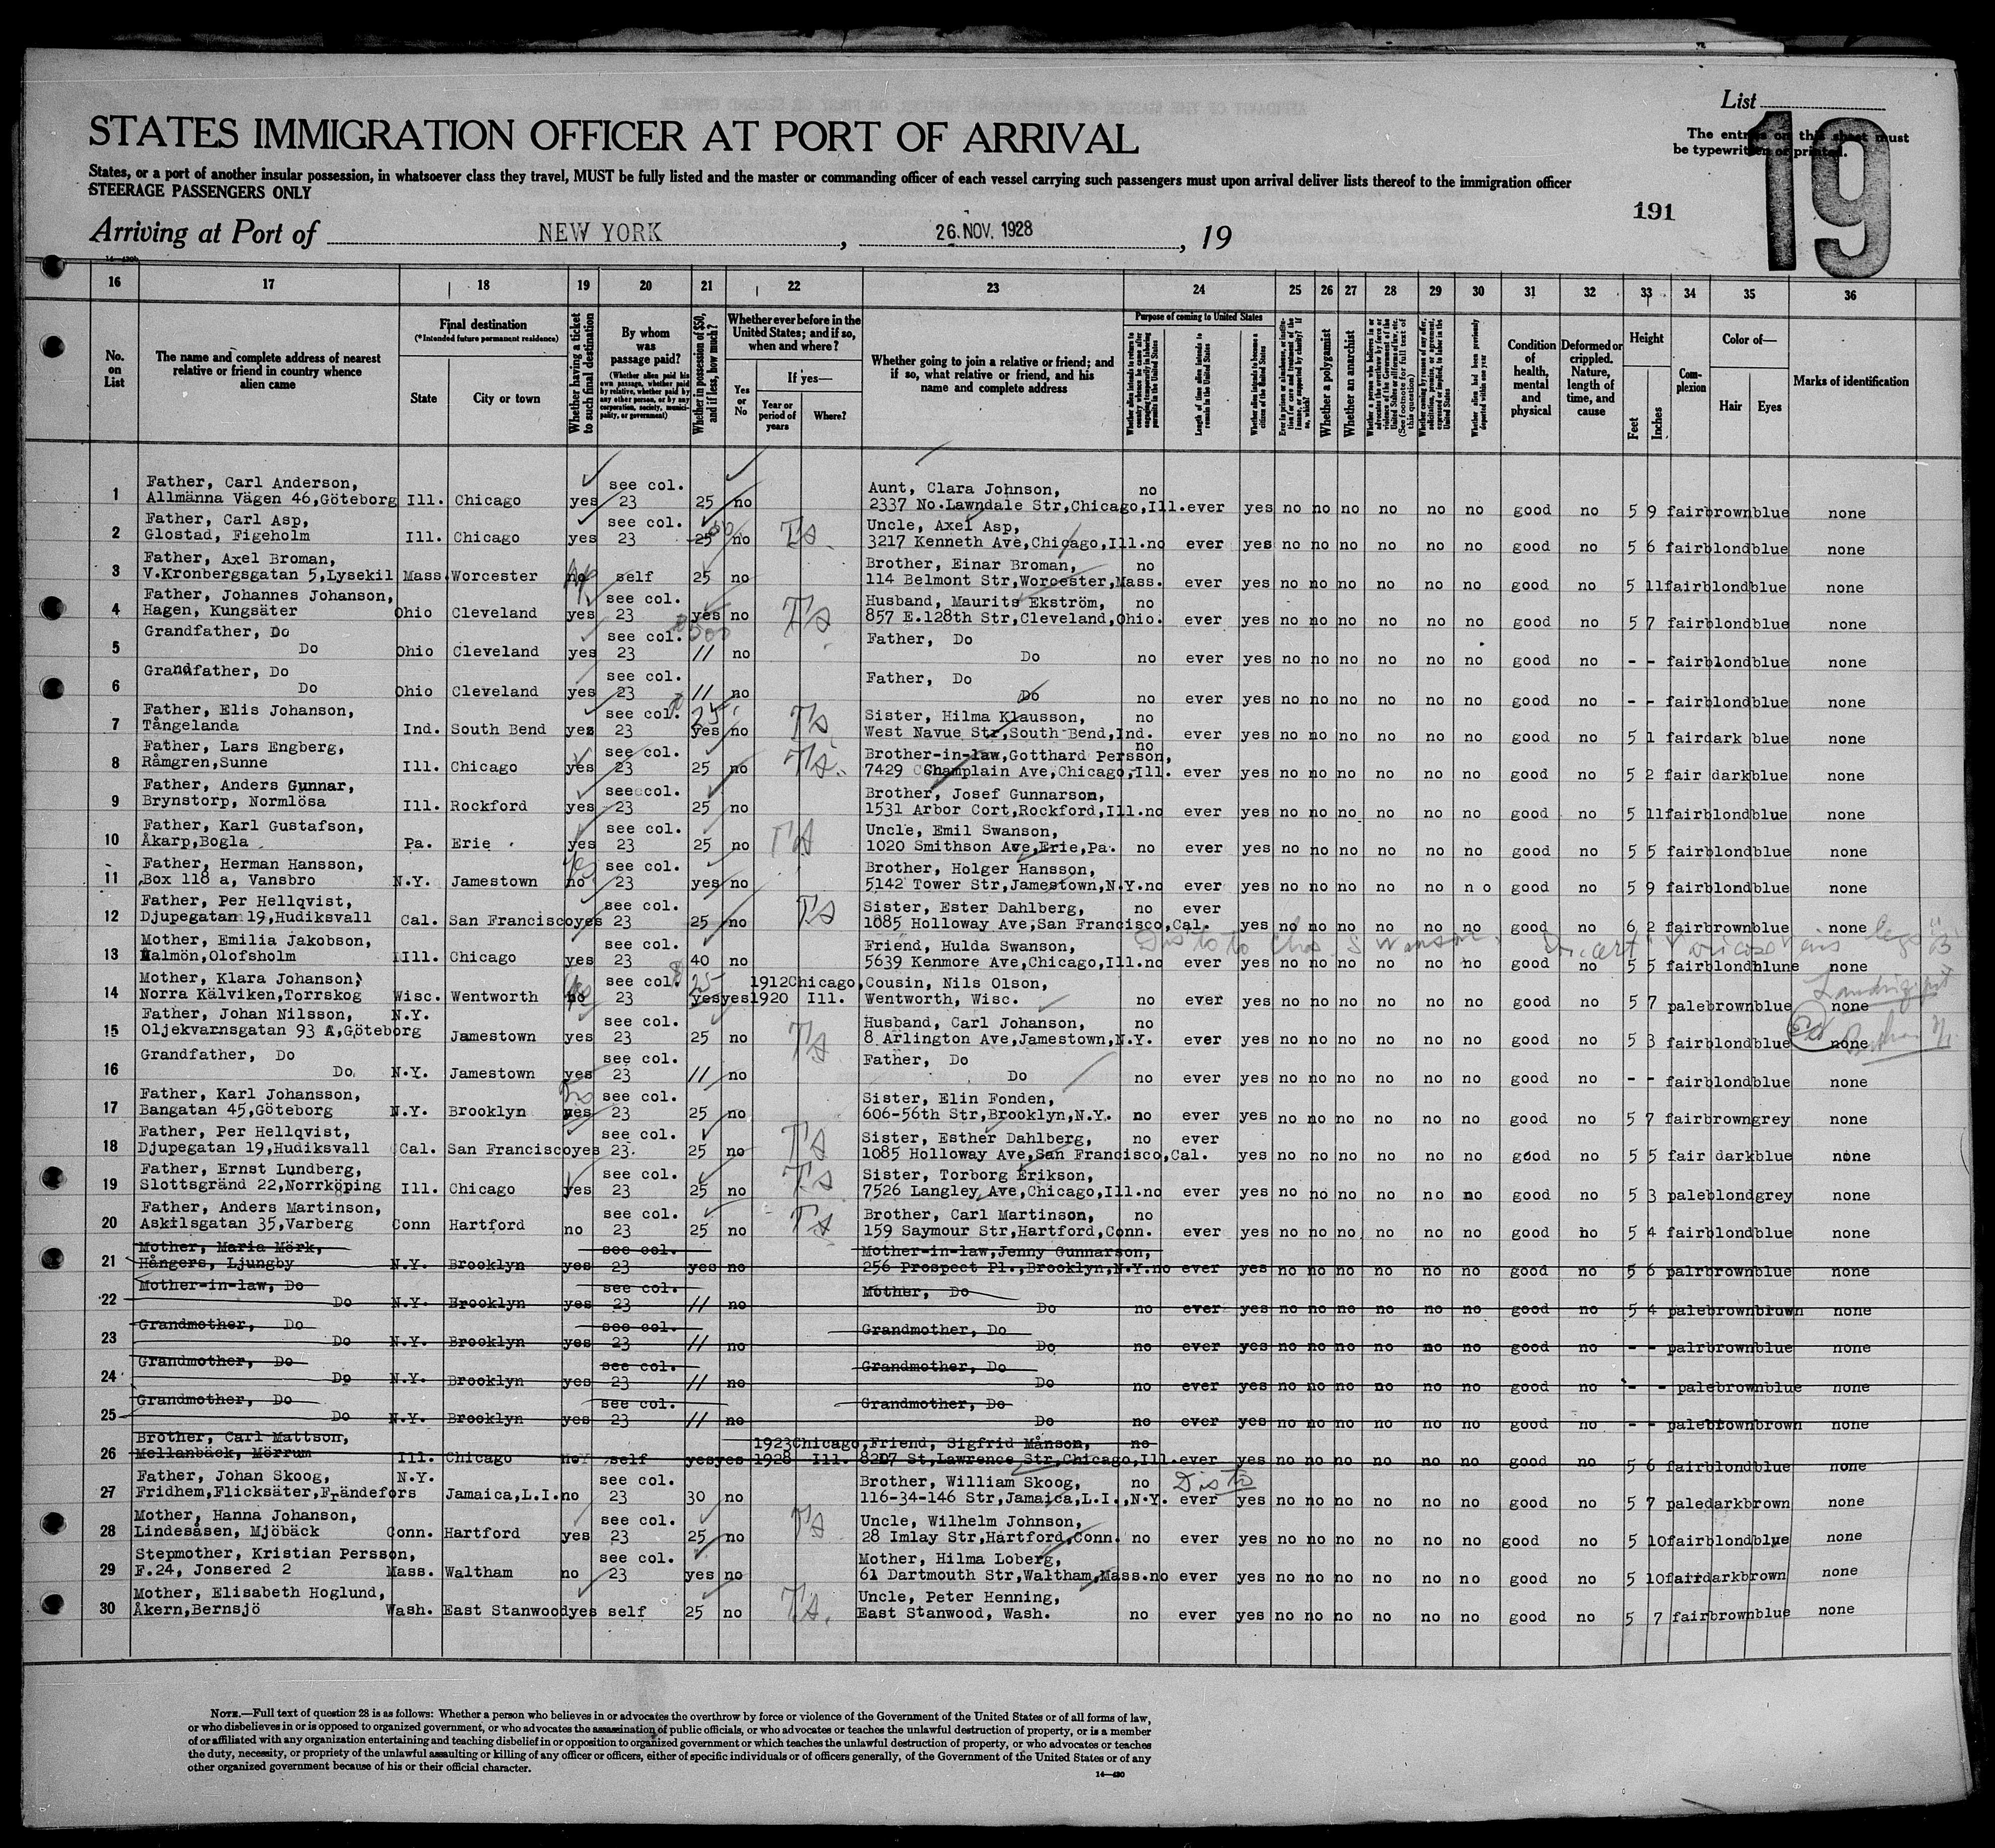 List
19
STATES IMMIGRATION OFFICER AT PORT OF ARRIVAL
The entries on this sheet must
be typewritten or printed.
States, or a port of another insular possession, in whatsoever class they travel, MUST be fully listed and the master or commanding officer of each vessel carrying such passengers must upon arrival deliver lists thereof to the immigration officer
STEERAGE PASSENGERS ONLY
191
Arriving at Port of NEW YORK , 26.NOV.1928 , 19
16 17 18 19 20 21 22 23 24 25 26 27 28 29 30 31 32 33 34 35 36
No. on List
The name and complete address of nearest relative or friend in country whence alien came
Final destination
(*Intended future permanent residence)
State City or town
Whether having a ticket to such final destination
By whom was passage paid?
(Whether alien paid his own passage, whether paid by relative, whether paid by any other person, or by any corporation, society, municipality, or government)
Whether in possession of $50, and if less, how much?
Whether ever before in the United States; and if so, when and where?
Yes or No
If yes—
Year or period of years
Where?
Whether going to join a relative or friend; and if so, what relative or friend, and his name and complete address
Purpose of coming to United States
Length of time alien intends to remain in the United States
Whether alien intends to become a citizen of the United States
Whether a polygamist
Whether an anarchist
Condition of health, mental and physical
Deformed or crippled. Nature, length of time, and cause
Height
Feet Inches
Complexion
Color of—
Hair Eyes
Marks of identification
Father, Carl Anderson, see col. Aunt, Clara Johnson, no
1 Allmänna Vägen 46,Göteborg Ill. Chicago yes 23 25 no 2337 No.Lawndale Str,Chicago,Ill.ever yes no no no no no no good no 5 9 fair brown blue none
Father, Carl Asp, see col. Uncle, Axel Asp,
2 Glostad, Figeholm Ill. Chicago yes 23 25 no Ts 3217 Kenneth Ave,Chicago,Ill.no ever yes no no no no no no good no 5 6 fair blond blue none
Father, Axel Broman, Brother, Einar Broman, no
3 V.Kronbergsgatan 5,Lysekil Mass. Worcester no self 25 no 114 Belmont Str,Worcester,Mass. ever yes no no no no no no good no 5 11 fair blond blue none
Father, Johannes Johanson, see col. Husband, Maurits Ekström, no
4 Hagen, Kungsäter Ohio Cleveland yes 23 yes no Ts 857 E.128th Str,Cleveland,Ohio. ever yes no no no no no no good no 5 7 fair blond blue none
Grandfather, Do see col. Father, Do
5 Do Ohio Cleveland yes 23 // no Do no ever yes no no no no no no good no - - fair blond blue none
Grandfather, Do see col. Father, Do
6 Do Ohio Cleveland yes 23 // no Do no ever yes no no no no no no good no - - fair blond blue none
Father, Elis Johanson, see col. 25 Sister, Hilma Klausson, no
7 Tångelanda Ind. South Bend yes 23 yes no Ts West Navue Str,South-Bend,Ind. ever yes no no no no no no good no 5 1 fair dark blue none
Father, Lars Engberg, see col. Brother-in-law,Gotthard Persson, no
8 Råmgren,Sunne Ill. Chicago yes 23 25 no Ts 7429 Champlain Ave,Chicago,Ill. ever yes no no no no no no good no 5 2 fair dark blue none
Father, Anders Gunnar, see col. Brother, Josef Gunnarson,
9 Brynstorp, Normlösa Ill. Rockford yes 23 25 no 1531 Arbor Cort,Rockford,Ill.no ever yes no no no no no no good no 5 11 fair blond blue none
Father, Karl Gustafson, see col. Uncle, Emil Swanson,
10 Åkarp,Bogla Pa. Erie yes 23 25 no Ts 1020 Smithson Ave,Erie,Pa. no ever yes no no no no no no good no 5 5 fair blond blue none
Father, Herman Hansson, yes see col. Brother, Holger Hansson,
11 Box 118 a, Vansbro N.Y. Jamestown no 23 yes no 5142 Tower Str,Jamestown,N.Y.no ever yes no no no no no no good no 5 9 fair blond blue none
Father, Per Hellqvist, see col. Sister, Ester Dahlberg, no ever
12 Djupegatan 19,Hudiksvall Cal. San Francisco yes 23 25 no Ts 1085 Holloway Ave,San Francisco,Cal. yes no no no no no no good no 6 2 fair brown blue none
Mother, Emilia Jakobson, see col. Friend, Hulda Swanson,
13 Halmön,Olofsholm Ill. Chicago yes 23 40 no 5639 Kenmore Ave,Chicago,Ill.no ever yes no no no no no no good no 5 5 fair blond blune none
Mother, Klara Johanson, see col. 25 1912 Chicago, Cousin, Nils Olson,
14 Norra Kälviken,Torrskog Wisc. Wentworth no 23 yes yes 1920 Ill. Wentworth, Wisc. no ever yes no no no no no no good no 5 7 pale brown blue none
Father, Johan Nilsson, N.Y. see col. Husband, Carl Johanson, no
15 Oljekvarnsgatan 93 A,Göteborg Jamestown yes 23 25 no Ts 8 Arlington Ave,Jamestown,N.Y. ever yes no no no no no no good no 5 3 fair blond blue none
Grandfather, Do see col. Father, Do
16 Do N.Y. Jamestown yes 23 // no Do no ever yes no no no no no no good no - - fair blond blue none
Father, Karl Johansson, no see col. Sister, Elin Fonden,
17 Bangatan 45,Göteborg N.Y. Brooklyn yes 23 25 no 606-56th Str,Brooklyn,N.Y. no ever yes no no no no no no good no 5 7 fair brown grey none
Father, Per Hellqvist, see col. Sister, Esther Dahlberg, no ever
18 Djupegatan 19,Hudiksvall Cal. San Francisco yes 23. 25 no Ts 1085 Holloway Ave,San Francisco,Cal. yes no no no no no no good no 5 5 fair dark blue none
Father, Ernst Lundberg, see col. Sister, Torborg Erikson,
19 Slottsgränd 22,Norrköping Ill. Chicago yes 23 25 no Ts 7526 Langley Ave,Chicago,Ill.no ever yes no no no no no no good no 5 3 pale blond grey none
Father, Anders Martinson, see col. Brother, Carl Martinson, no
20 Askilsgatan 35,Varberg Conn Hartford no 23 25 no Ts 159 Saymour Str,Hartford,Conn. ever yes no no no no no no good no 5 4 fair blond blue none
Mother, Maria Mörk, see col. Mother-in-law,Jenny Gunnarson,
21 Hångers, Ljungby N.Y. Brooklyn yes 23 yes no 256 Prospect Pl.,Brooklyn,N.Y.no ever yes no no no no no no good no 5 6 palr brown blue none
Mother-in-law, Do see col. Mother, Do
22 Do N.Y. Brooklyn yes 23 // no Do no ever yes no no no no no no good no 5 4 pale brown brown none
Grandmother, Do see col. Grandmother, Do
23 Do N.Y. Brooklyn yes 23 // no Do no ever yes no no no no no no good no - - palr brown blue none
Grandmother, Do see col. Grandmother, Do
24 Do N.Y. Brooklyn yes 23 // no Do no ever yes no no no no no no good no - - pale brown blue none
Grandmother, Do see col. Grandmother, Do
25 Do N.Y. Brooklyn yes 23 // no Do no ever yes no no no no no no good no - - pale brown brown none
Brother, Carl Mattson, 1923 Chicago, Friend, Sigfrid Månson, no
26 Mellanbäck, Mörrum Ill. Chicago no self yes yes 1928 Ill. 8207 St,Lawrence Str,Chicago,Ill.ever yes no no no no no no good no 5 6 fair blond blue none
Father, Johan Skoog, N.Y. see col. Brother, William Skoog, no
27 Fridhem,Flicksäter,Frändefors Jamaica,L.I. no 23 30 no 116-34-146 Str,Jamaica,L.I.,N.Y. ever yes no no no no no no good no 5 7 pale dark brown none
Mother, Hanna Johanson, see col. Uncle, Wilhelm Johnson,
28 Lindesåsen, Mjöbäck Conn. Hartford yes 23 25 no Ts 28 Imlay Str,Hartford,Conn. no ever yes no no no no no no good no 5 10 fair blond blue none
Stepmother, Kristian Persson, see col. Mother, Hilma Loberg,
29 F.24, Jonsered 2 Mass. Waltham no 23 yes no 61 Dartmouth Str,Waltham,Mass.no ever yes no no no no no no good no 5 10 fair dark brown none
Mother, Elisabeth Hoglund, Uncle, Peter Henning,
30 Åkern,Bernsjö Wash. East Stanwood yes self 25 no Ts. East Stanwood, Wash. no ever yes no no no no no no good no 5 7 fair brown blue none
NOTE.—Full text of question 28 is as follows: Whether a person who believes in or advocates the overthrow by force or violence of the Government of the United States or of all forms of law,
or who disbelieves in or is opposed to organized government, or who advocates the assassination of public officials, or who advocates or teaches the unlawful destruction of property, or is a member
of or affiliated with any organization entertaining and teaching disbelief in or opposition to organized government or which teaches the unlawful destruction of property, or who advocates or teaches
the duty, necessity, or propriety of the unlawful assaulting or killing of any officer or officers, either of specific individuals or of officers generally, of the Government of the United States or of any
other organized government because of his or their official character.
14—430